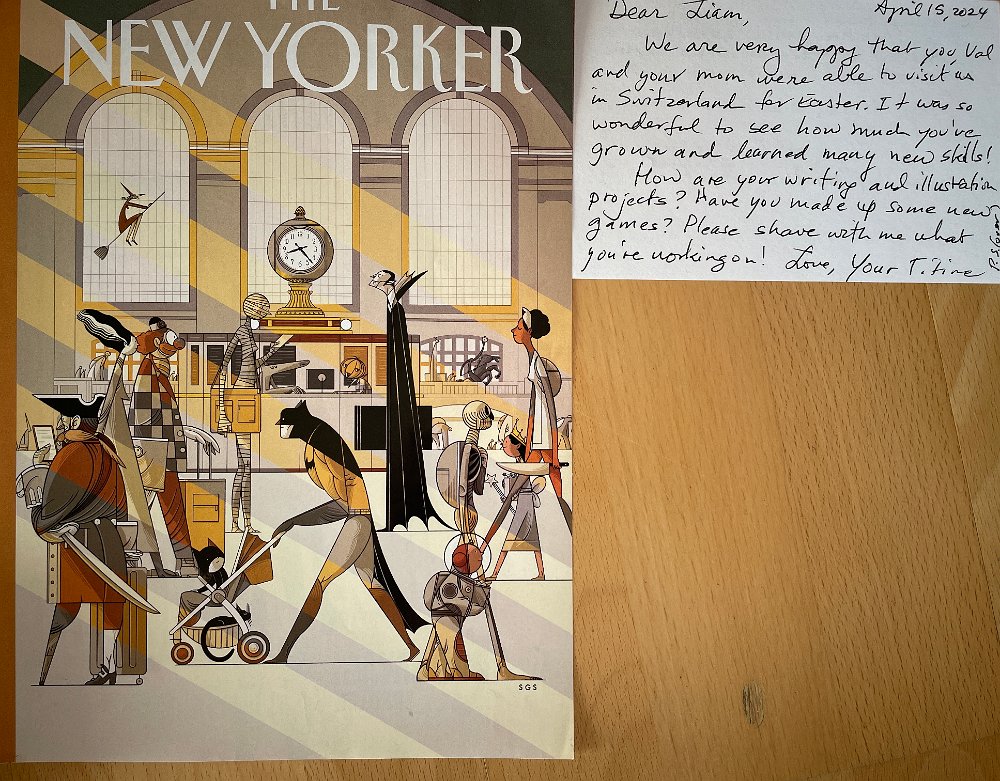 THE
NEW YORKER
SGS
Dear Liam,
April 15, 2024
We are very happy that you, Val
and your mom were able to visit us
in Switzerland for Easter. It was so
wonderful to see how much you've
grown and learned many new skills!
How are your writing and illustration
projects? Have you made up some new
games? Please share with me what
you're working on! Love, Your T. Fine
P.S.